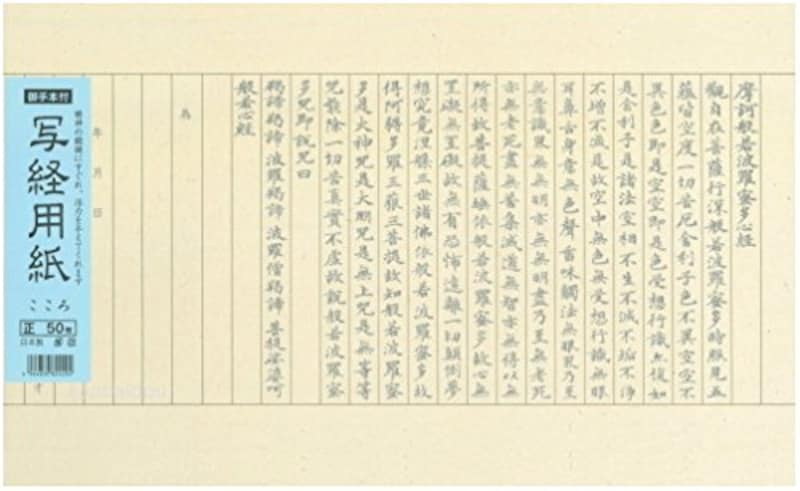 摩訶般若波羅蜜多心経
觀自在菩薩行深般若波羅蜜多時照見五
蘊皆空度一切苦厄舍利子色不異空空不
異色色即是空空即是色受想行識亦復如
是舍利子是諸法空相不生不滅不垢不浄
不増不減是故空中無色無受想行識無眼
耳鼻舌身意無色聲香味觸法無眼界乃至
無意識界無無明亦無無明盡乃至無老死
亦無老死盡無苦集滅道無智亦無得以無
所得故菩提薩埵依般若波羅蜜多故心無
罣礙無罣礙故無有恐怖遠離一切顛倒夢
想究竟涅槃三世諸佛依般若波羅蜜多故
得阿耨多羅三藐三菩提故知般若波羅蜜
多是大神咒是大明咒是無上咒是無等等
咒能除一切苦真實不虚故説般若波羅蜜
多咒即説咒曰
羯諦羯諦 波羅羯諦 波羅僧羯諦 菩提薩婆訶
般若心経
為
年 月 日
御手本付
写経用紙
精神の鍛錬にすぐれ、活力を与えてくれます
こころ
正 50枚
日本製